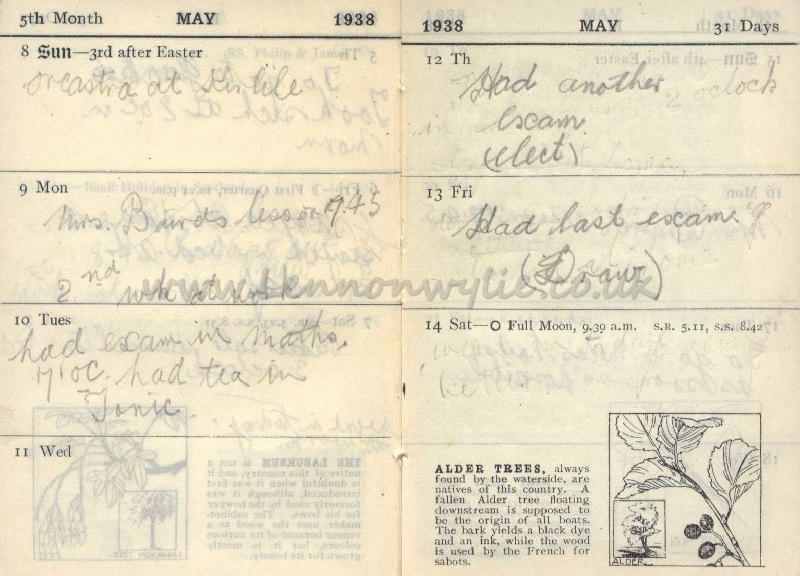 5th Month MAY 1938
8 Sun—3rd after Easter
orcastra at Kirlile
9 Mon
Mrs. Bairds lesson 9.45
2nd wk at work
10 Tues
had exam in maths.
7 oc. had tea in
Tonic.
11 Wed
1938 MAY 31 Days
12 Th
Had another
exam
(elect)
13 Fri
Had last exam
(Draw)
14 Sat—O Full Moon, 9.39 a.m. S.R. 5.11, S.S. 8.42
ALDER TREES, always
found by the waterside, are
natives of this country. A
fallen Alder tree floating
downstream is supposed to
be the origin of all boats.
The bark yields a black dye
and an ink, while the wood
is used by the French for
sabots.
ALDER
www.lennonwylie.co.uk